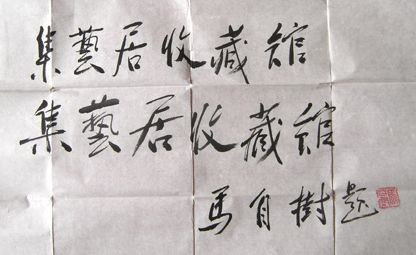 集藝居收藏館
集藝居收藏館
馬自樹題